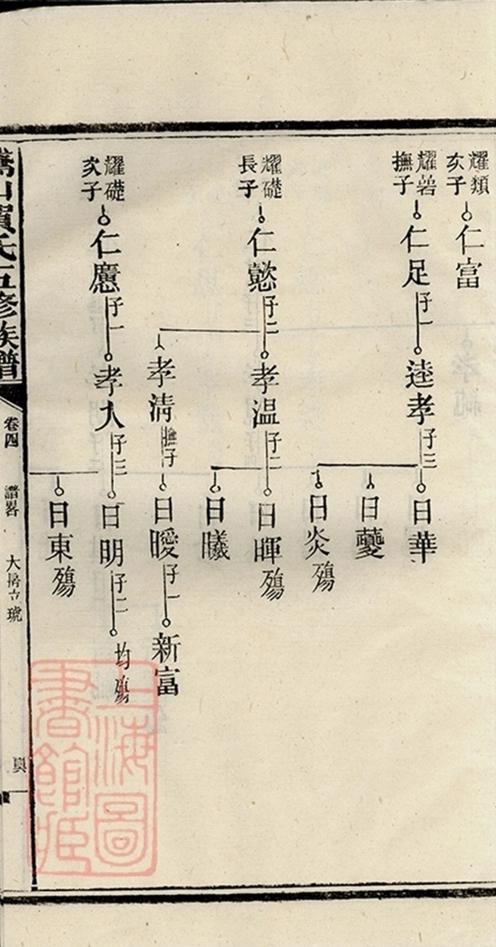 耀類
次子
仁富
耀碞
撫子
仁足
子一
逵孝
子三
日華
日虁
日炎殤
耀礎
長子
仁懿
子二
孝温
子二
日暉殤
日曦
孝清
撫子
日曖
子一
新富
耀礎
次子
仁應
子一
孝大
子三
日明
子二
均殤
日東殤
賀氏五修族譜
卷四
譜畧
大房立琥
上海圖
書館藏